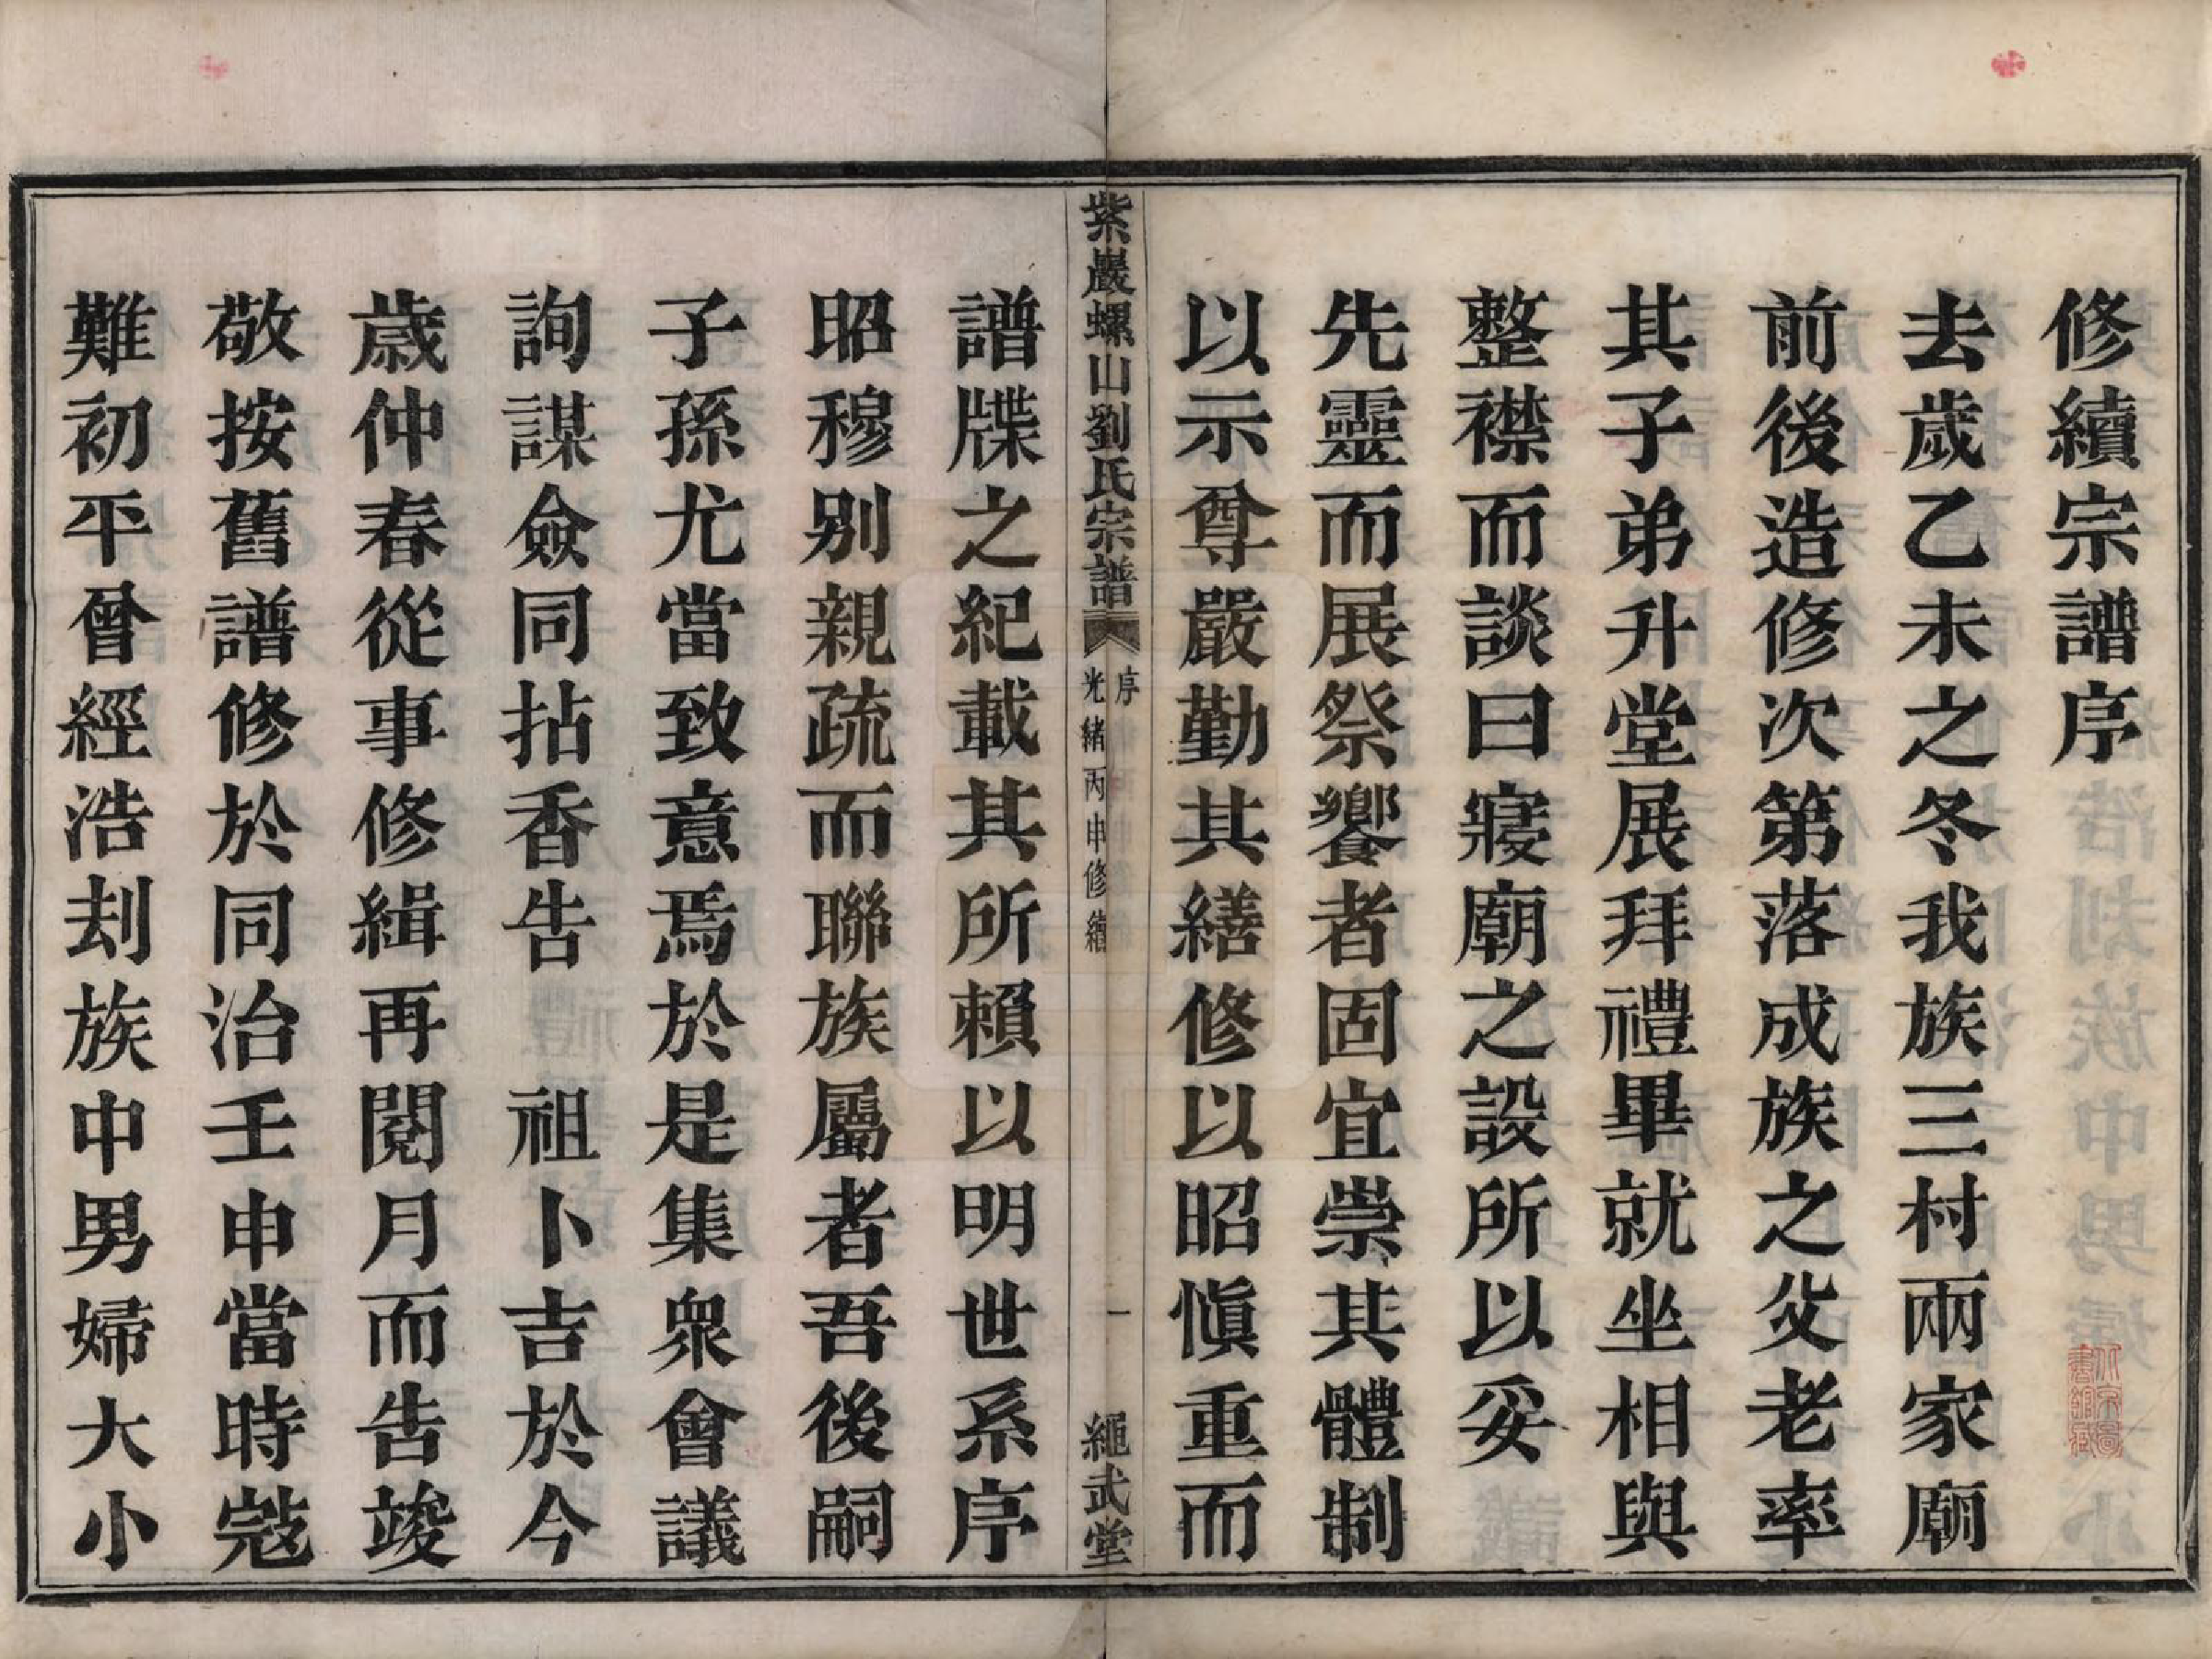 修續宗譜序
去歲乙未之冬我族三村兩家廟
前後造修次第落成族之父老率
其子弟升堂展拜禮畢就坐相與
整襟而談曰寢廟之設所以妥
先靈而展祭饗者固宜崇其體制
以示尊嚴勤其繕修以昭愼重而
紫巖螺山劉氏宗譜
序
光緒丙申修續
一
繩武堂
譜牒之紀載其所賴以明世系序
昭穆別親疏而聯族屬者吾後嗣
子孫尤當致意焉於是集衆會議
詢謀僉同拈香告　祖卜吉於今
歲仲春從事修緝再閱月而告竣
敬按舊譜修於同治壬申當時寇
難初平曾經浩刦族中男婦大小